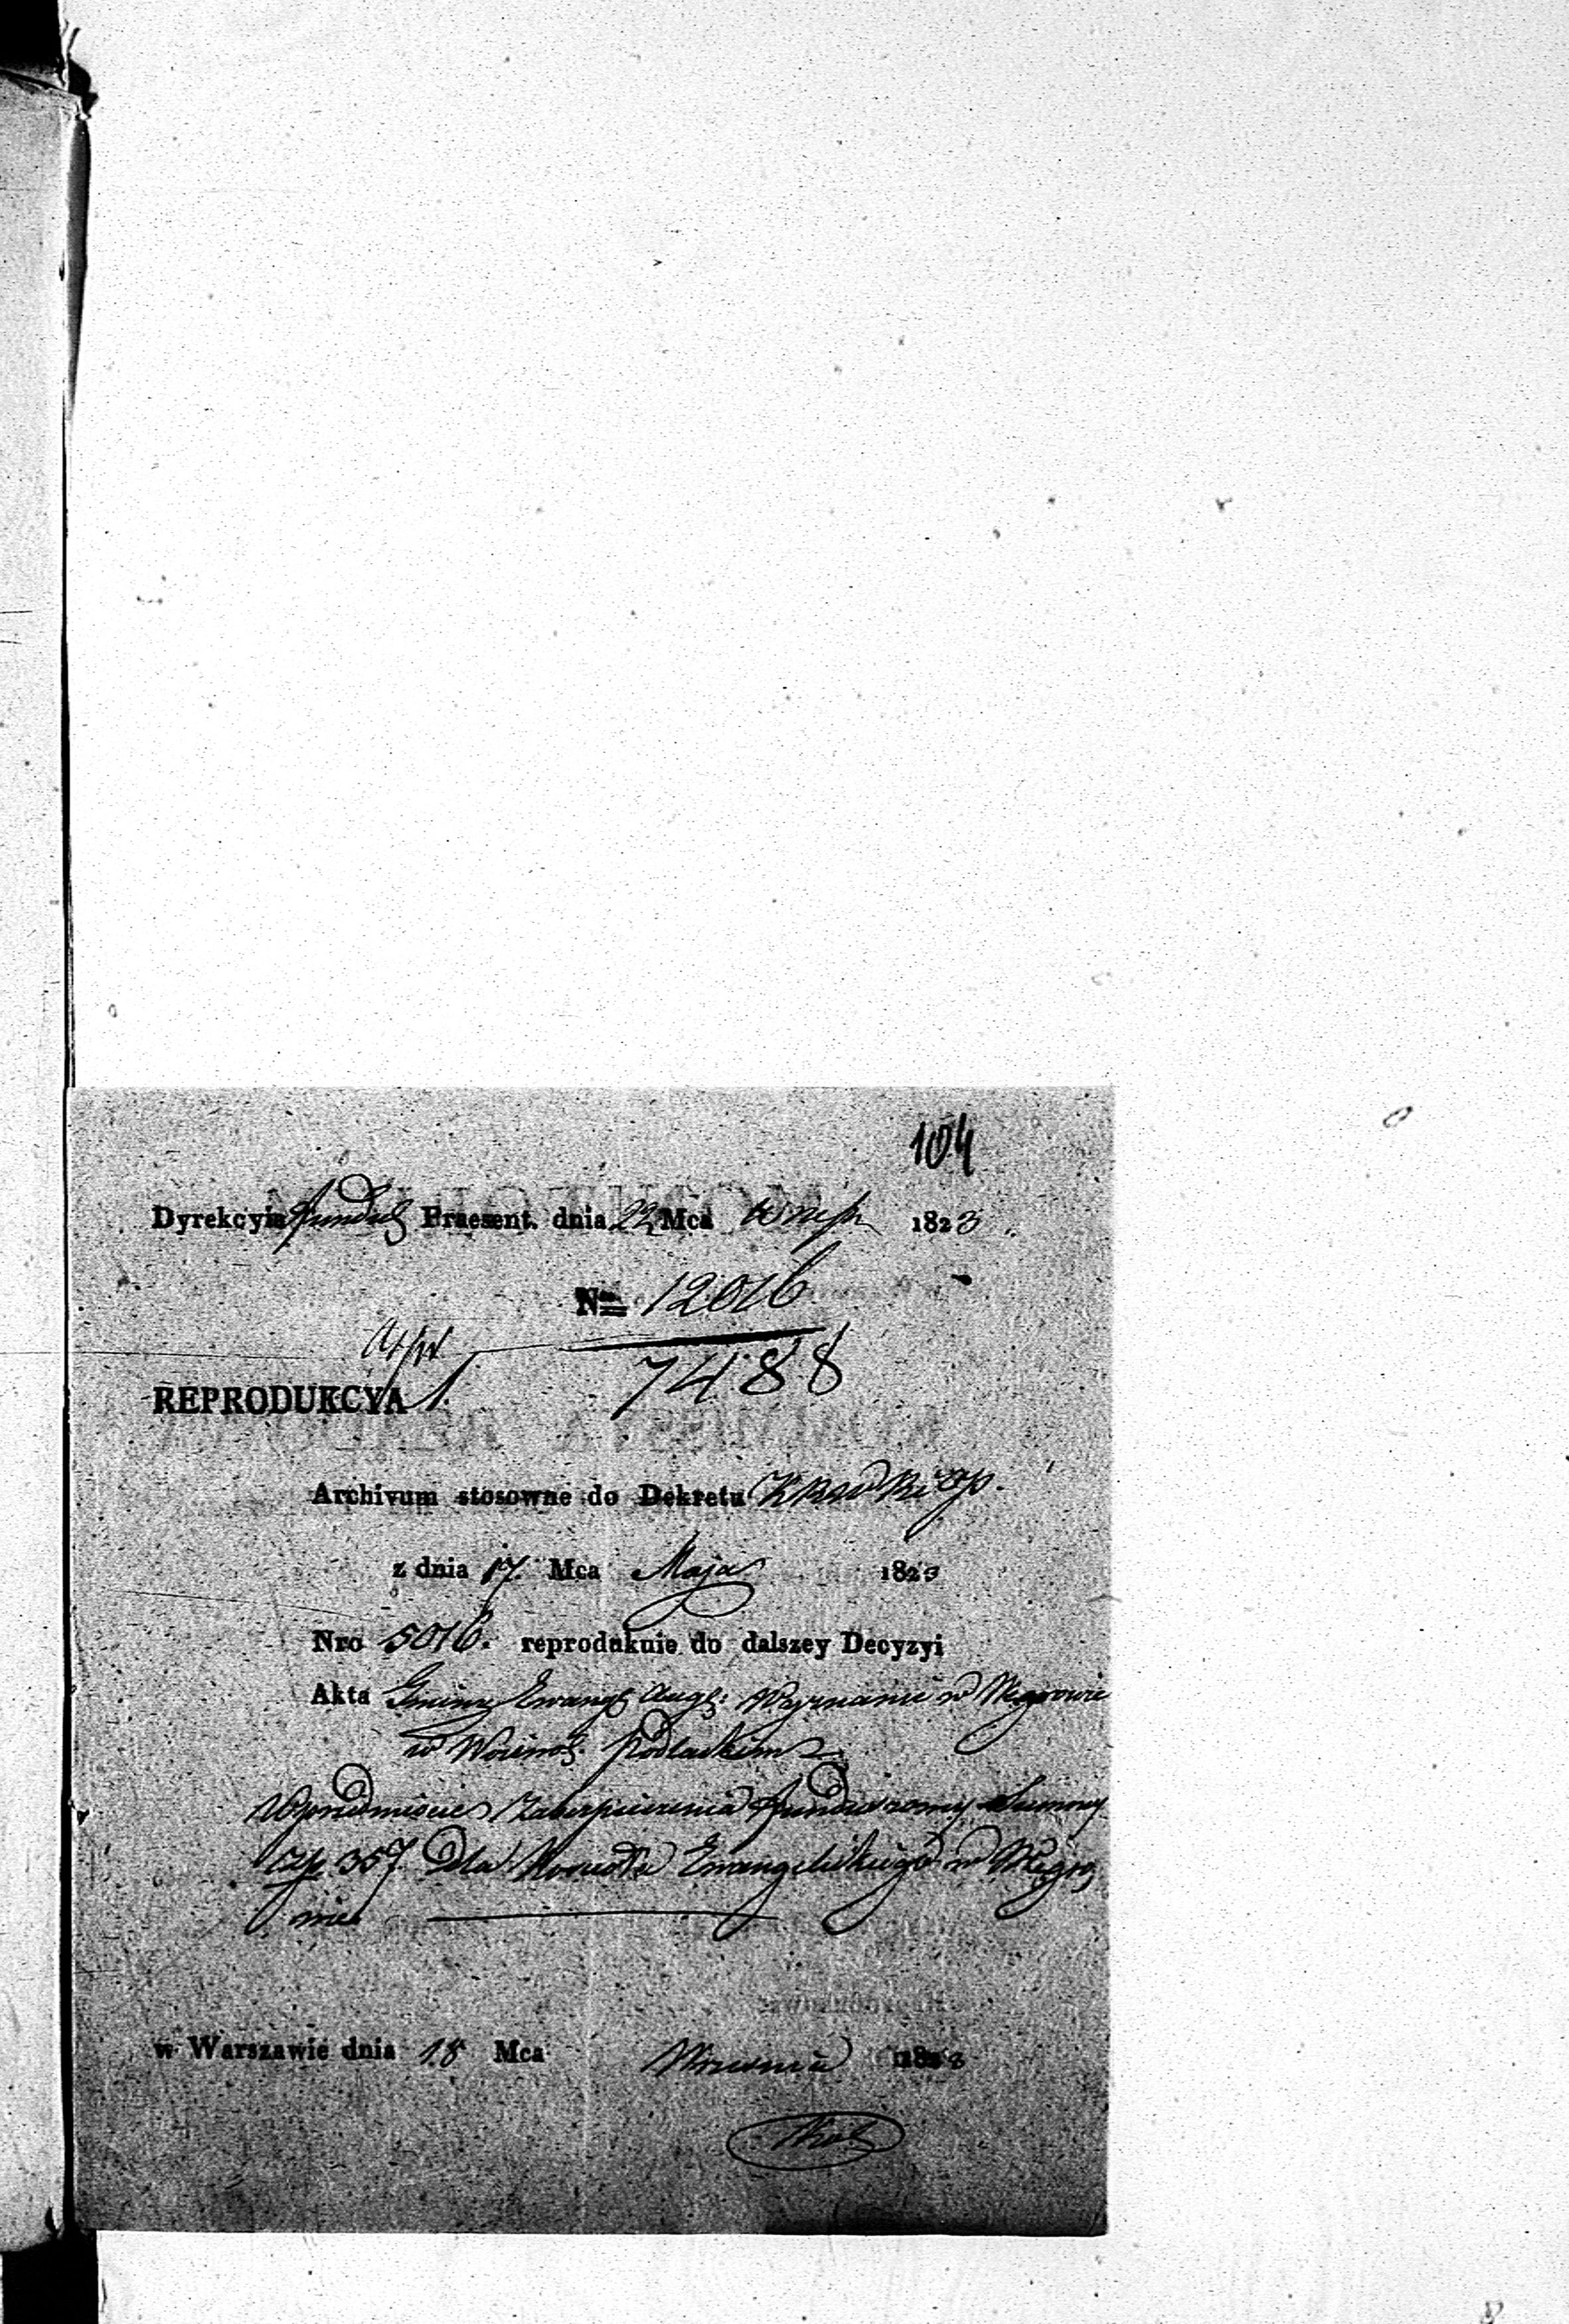 104
Dyrekcyia Fundusz Praesent. dnia 22 Mca Wrześn 1823
Nro 12016
7488
REPRODUKCYA 1.
Archivum stosowne do Dekretu
z dnia 17. Mca Maja 1823
Nro 5016. reprodukuie do dalszey Decyzyi
Akta Gminy Ewang. Augs: Wyznania w Węgrowie
w Woiewo. Podlaskim
W przedmiocie Zabezpieczenia funduszowey Summy
złp. 357. dla Kościoła Ewangelickiego w Węgro
wie
w Warszawie dnia 18 Mca Września 1823